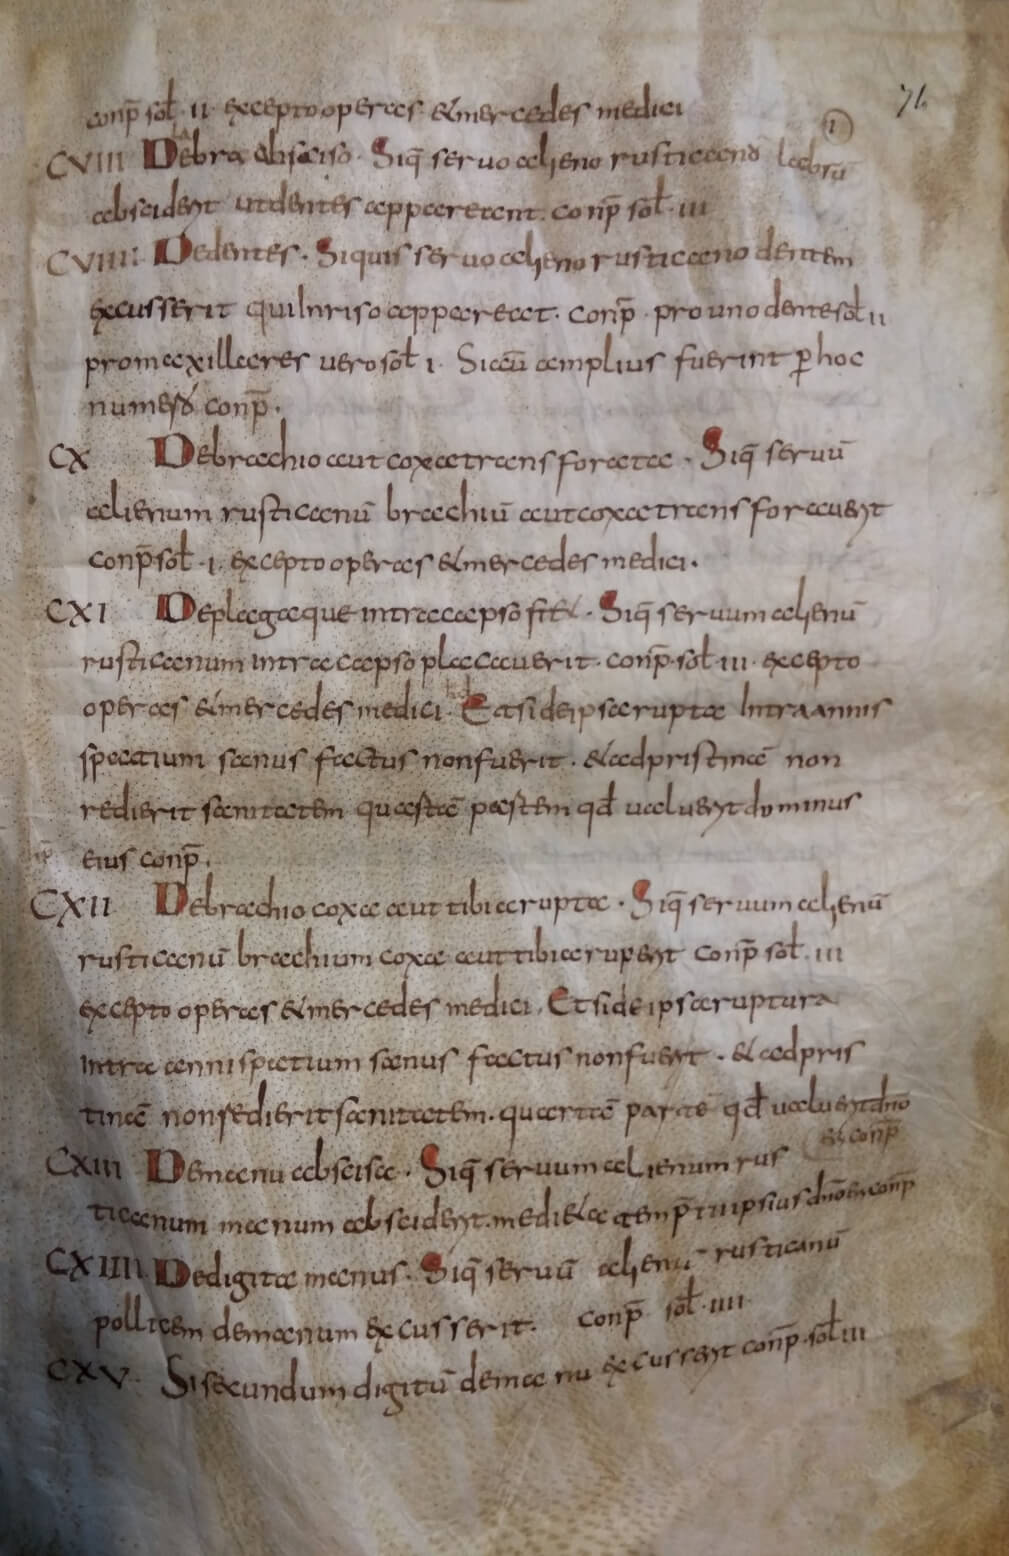 71
conp̄ sol̄ · ii · excepto operas & mercedes medici
CVIII De labra absciso · Siq̄ servo alieno rusticano labrū
absciderit ut dentes appareant. conp̄ sol̄ · iii
CVIIII Dedentes · Siquis servo alieno rusticano dentem
excusserit qui in riso appareat · conp̄ · pro uno dente sol̄ ii
pro maxillares vero sol̄ i · Si aū amplius fuerint ꝑ hoc
numerū conp̄ ·
CX De brachio aut coxa transforata · Siq̄ servū
alienum rusticanū brachiū aut coxa transforaverit
conp̄ sol̄ · i · excepto operas & mercedes medici ·
CXI De plaga que intra capso fit · Siq̄ servum alienū
rusticanum intra capso placaverit · conp̄ · sol̄ · iii · excepto
operas & mercedes medici · Et si de ipsa rupta intra annis
spatium sanus factus non fuerit · & ad pristinā non
redierit sanitatem quartā partem qd̄ valuerit dominus
eius conp̄ ·
CXII De brachio coxa aut tibia rupta · Siq̄ servum alienū
rusticanū brachium coxa aut tibia ruperit conp̄ sol̄ · iii
excepto operas & mercedes medici · Et si de ipsa ruptura
intra anni spatium sanus factus non fuerit · & ad pris
tinā non redierit sanitatem · quartā partē qd̄ valuerit dn̄o
ei conp̄
CXIII De manu abscisa · Siq̄ servum alienum rus
ticanum manum absciderit · medi&a tem p̄tii ipsius dn̄o ei conp̄
CXIIII De digita manus · Siq̄ servū alienū rusticanū
pollicem de manum excusserit · conp̄ sol̄ · iiii
CXV · Si secundum digitū de manu excusserit conp̄ · sol̄ iii